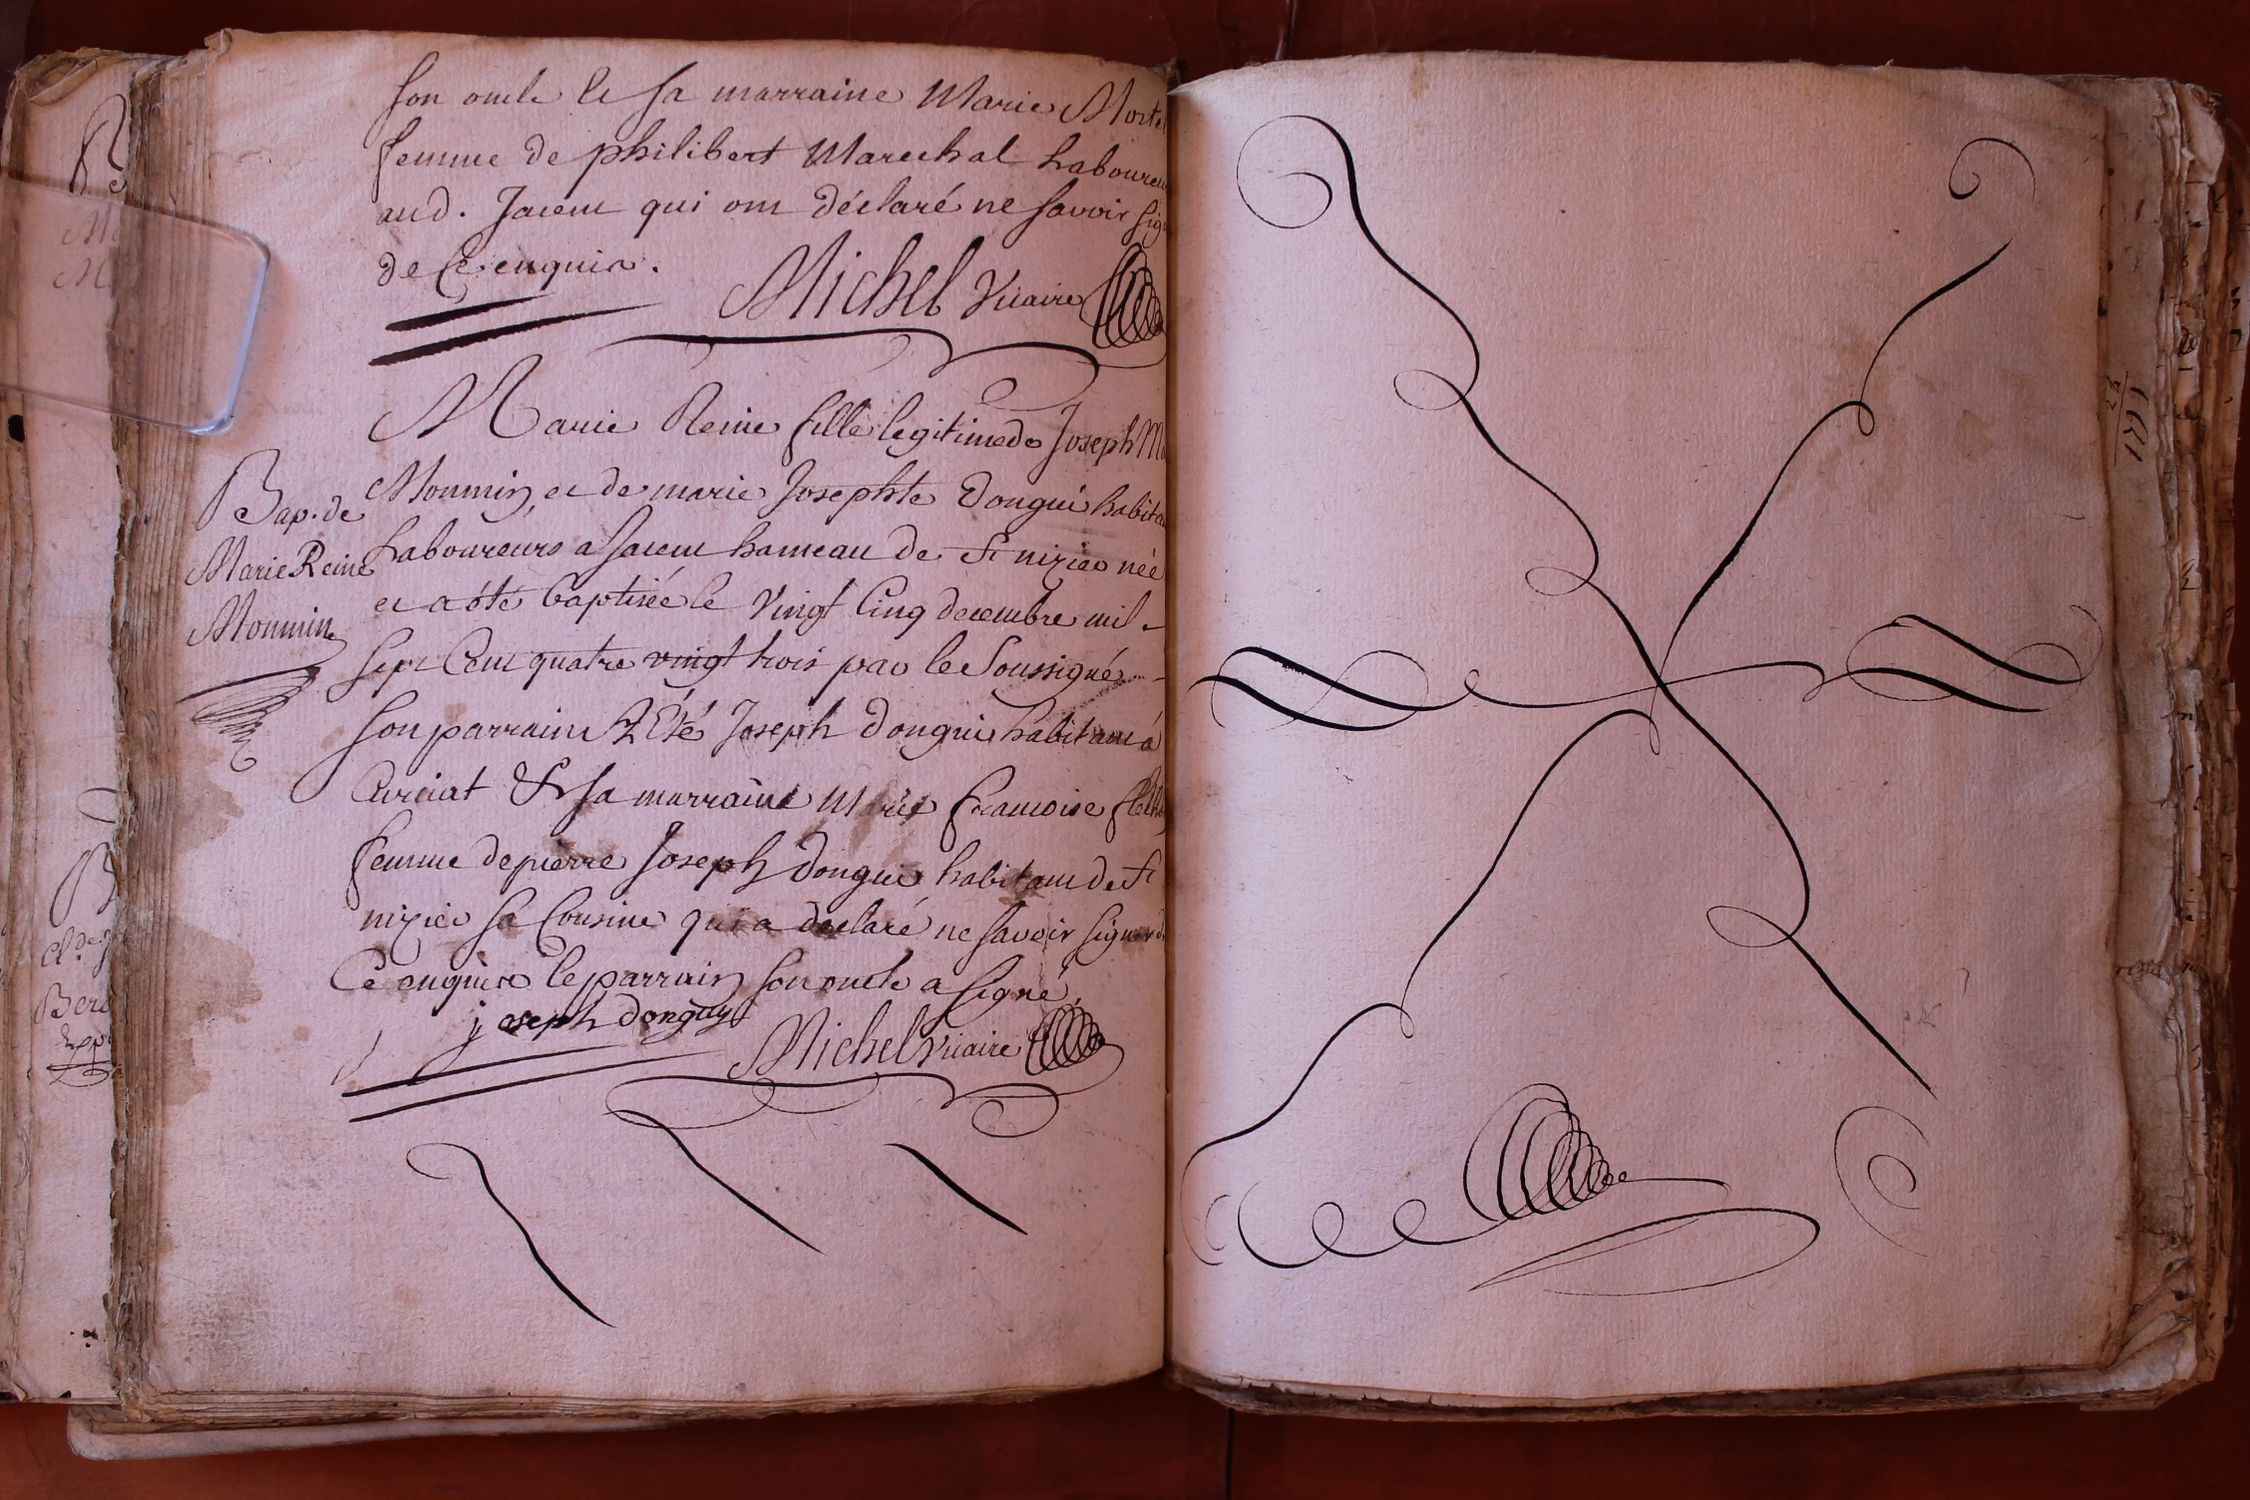 son oncle et sa marraine Marie
femme de philibert Marechal Laboureur
aud. Jacent qui ont déclaré ne savoir
de ce enquis.
Michel Vicaire
Marie Reine fille legitime de Joseph
Bap. de
Marie Reine
Monnin
Monnin, et de marie Josephte Donguî
Laboureurs a Jacent hameau de St nizier née
et a été baptisée le vingt cinq decembre mil
sept cent quatre vingt trois par le soussigné
son parrain a Eté Joseph Dongui habitant á
Curciat & sa marraine Marie francoise
femme de pierre Joseph Dongui habitant de St
nizier sa cousine qui a declaré ne savoir signer
ce enquise le parrain son oncle a signé
joseph Donguy
Michel Vicaire